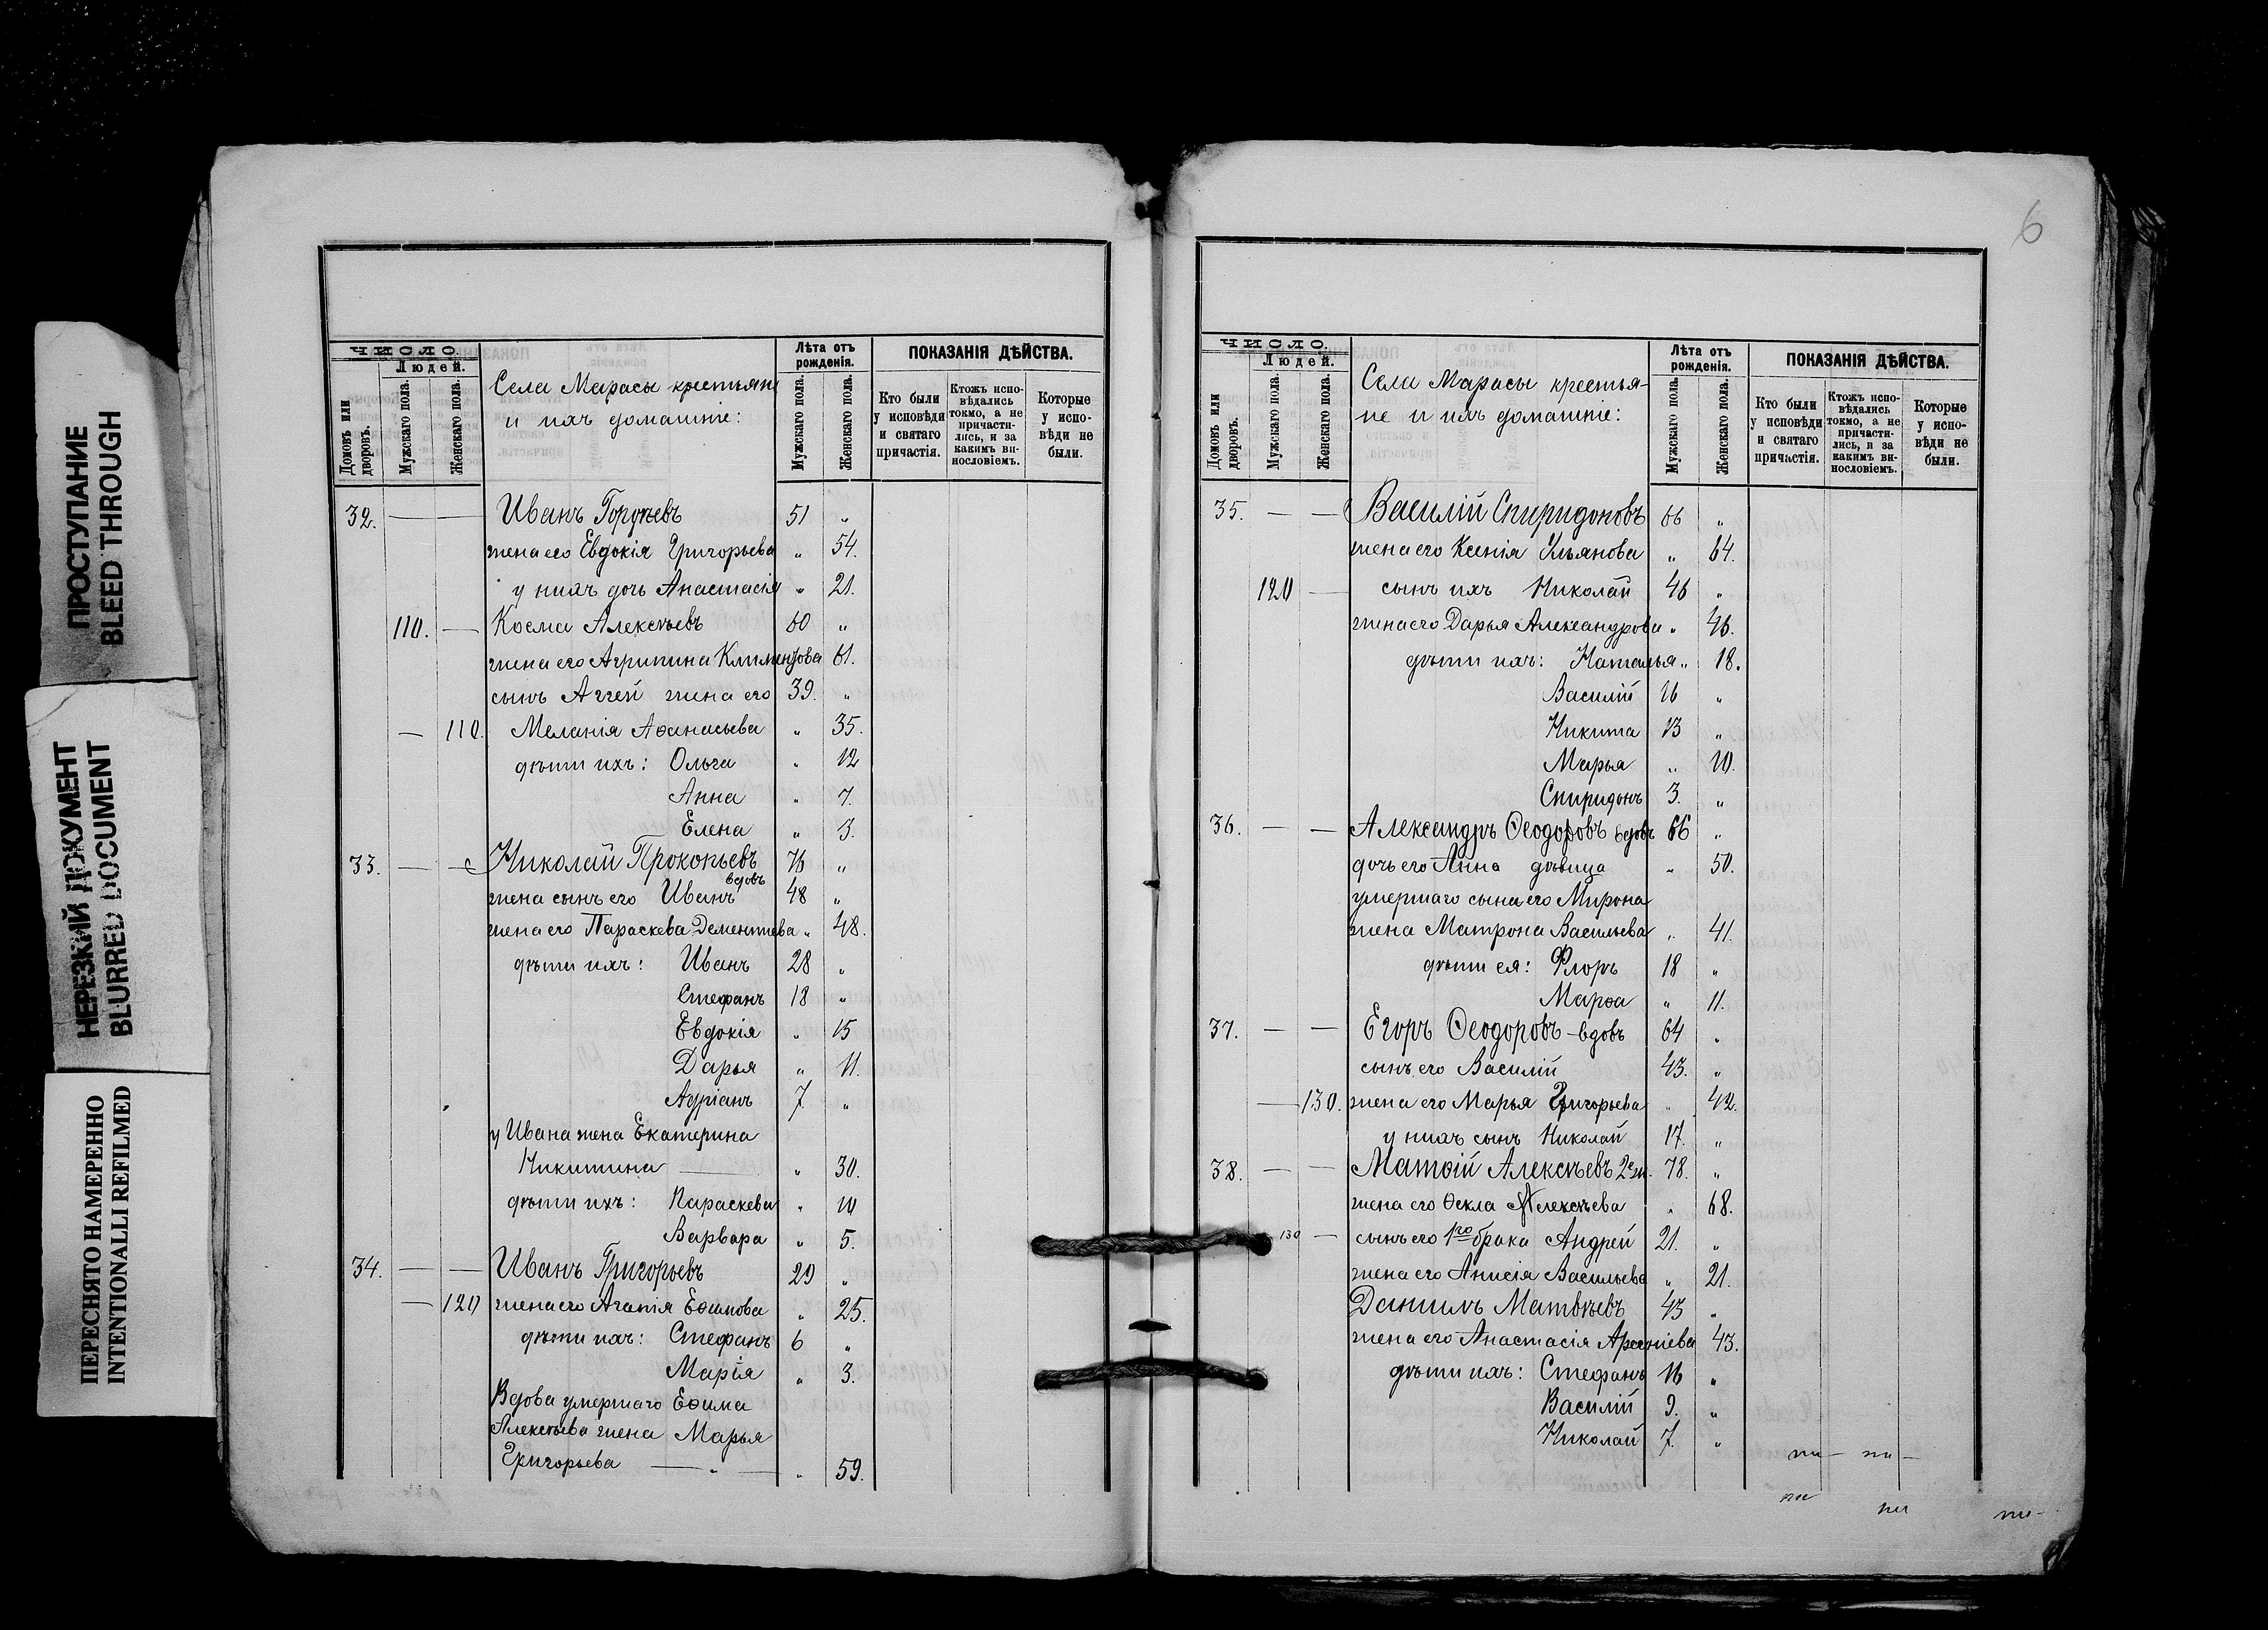 ПРОСТУПАНИЕ
BLEED THROUGH
НЕРЕЗКИЙ ДОКУМЕНТ
BLURRED DOCUMENT
ПЕРЕСНЯТО НАМЕРЕННО
INTENTIONALLI REFILMED
ЧИСЛО.
Домовъ или дворовъ.
Людей.
Мужскаго пола.
Женскаго пола.
Села Марасы крестьяне
и ихъ домашніе:
Лѣта отъ рожденія.
Мужскаго пола.
Женскаго пола.
ПОКАЗАНІЯ ДѢЙСТВА.
Кто были у исповѣди и святаго причастія.
Ктожъ исповѣдались токмо, а не причастились, и за какимъ винословіемъ.
Которые у исповѣди не были.
32. — — Иванъ 51 „
жена его Евдокія Григорьева „ 54.
у нихъ дочь Анастасія „ 21.
110. — Косма Алексѣевъ 60 „
жена его Агрипина Климентова 61.
сынъ Аггей жена его 39. „
— 110. Меланія Аѳанасьева „ 35.
дѣти ихъ: Ольга „ 12
Анна „ 7.
Елена „ 3.
33. — — Николай Прокопьевъ 76 „
вдовъ
жена сынъ его Иванъ 48 „
жена его Параскева Дементьева „ 48.
дѣти ихъ: Иванъ 28 „
Стефанъ 18 „
Евдокія „ 15
Дарья „ 11.
Адріанъ 7. „
у Ивана жена Екатерина
Никитина — „ 30.
дѣти ихъ: Параскева „ 10
Варвара „ 5.
34. — — Иванъ Григорьевъ 29 „
— 120 жена его Агапія Ефимова „ 25.
дѣти ихъ: Стефанъ 6 „
Марія „ 3.
Вдова умершаго Еѳима
Алексѣева жена Марья
Григорьева — „ — „ 59.
6
ЧИСЛО.
Домовъ или дворовъ.
Людей.
Мужскаго пола.
Женскаго пола.
Села Марасы крестья-
не и ихъ домашніе:
Лѣта отъ рожденія.
Мужскаго пола.
Женскаго пола.
ПОКАЗАНІЯ ДѢЙСТВА.
Кто были у исповѣди и святаго причастія.
Ктожъ исповѣдались токмо, а не причастились, и за какимъ винословіемъ.
Которые у исповѣди не были.
35. — — Василій Спиридоновъ 66 „
жена его Ксенія Ульянова „ 64.
120 — сынъ ихъ Николай 46 „
жена его Дарья Александрова „ 46.
дѣти ихъ: Наталья „ 18.
Василій 16 „
Никита 13 „
Марья „ 10.
Спиридонъ 3. „
36. — — Александръ Ѳеодоровъ вдовъ 66 „
дочь его Анна дѣвица „ 50.
умершаго сына его Мирона
жена Матрона Васильева „ 41.
дѣти ея: Флоръ 18 „
Марѳа „ 11.
37. — — Егоръ Ѳеодоровъ — вдовъ 64 „
сынъ его Василій 43. „
— 130. жена его Марья Григорьева „ 42.
у нихъ сынъ Николай 17. „
38. — — Матѳій Алексѣевъ 2 ж. 78. „
жена его Ѳекла Алексѣева „ 68.
130 — сынъ его 1го брака Андрей 21. „
жена его Анисія Васильева „ 21.
Даниилъ Матвѣевъ 43 „
жена его Анастасія Арсеніева 43.
дѣти ихъ: Стефанъ 16 „
Василій 9. „
Николай 7. „